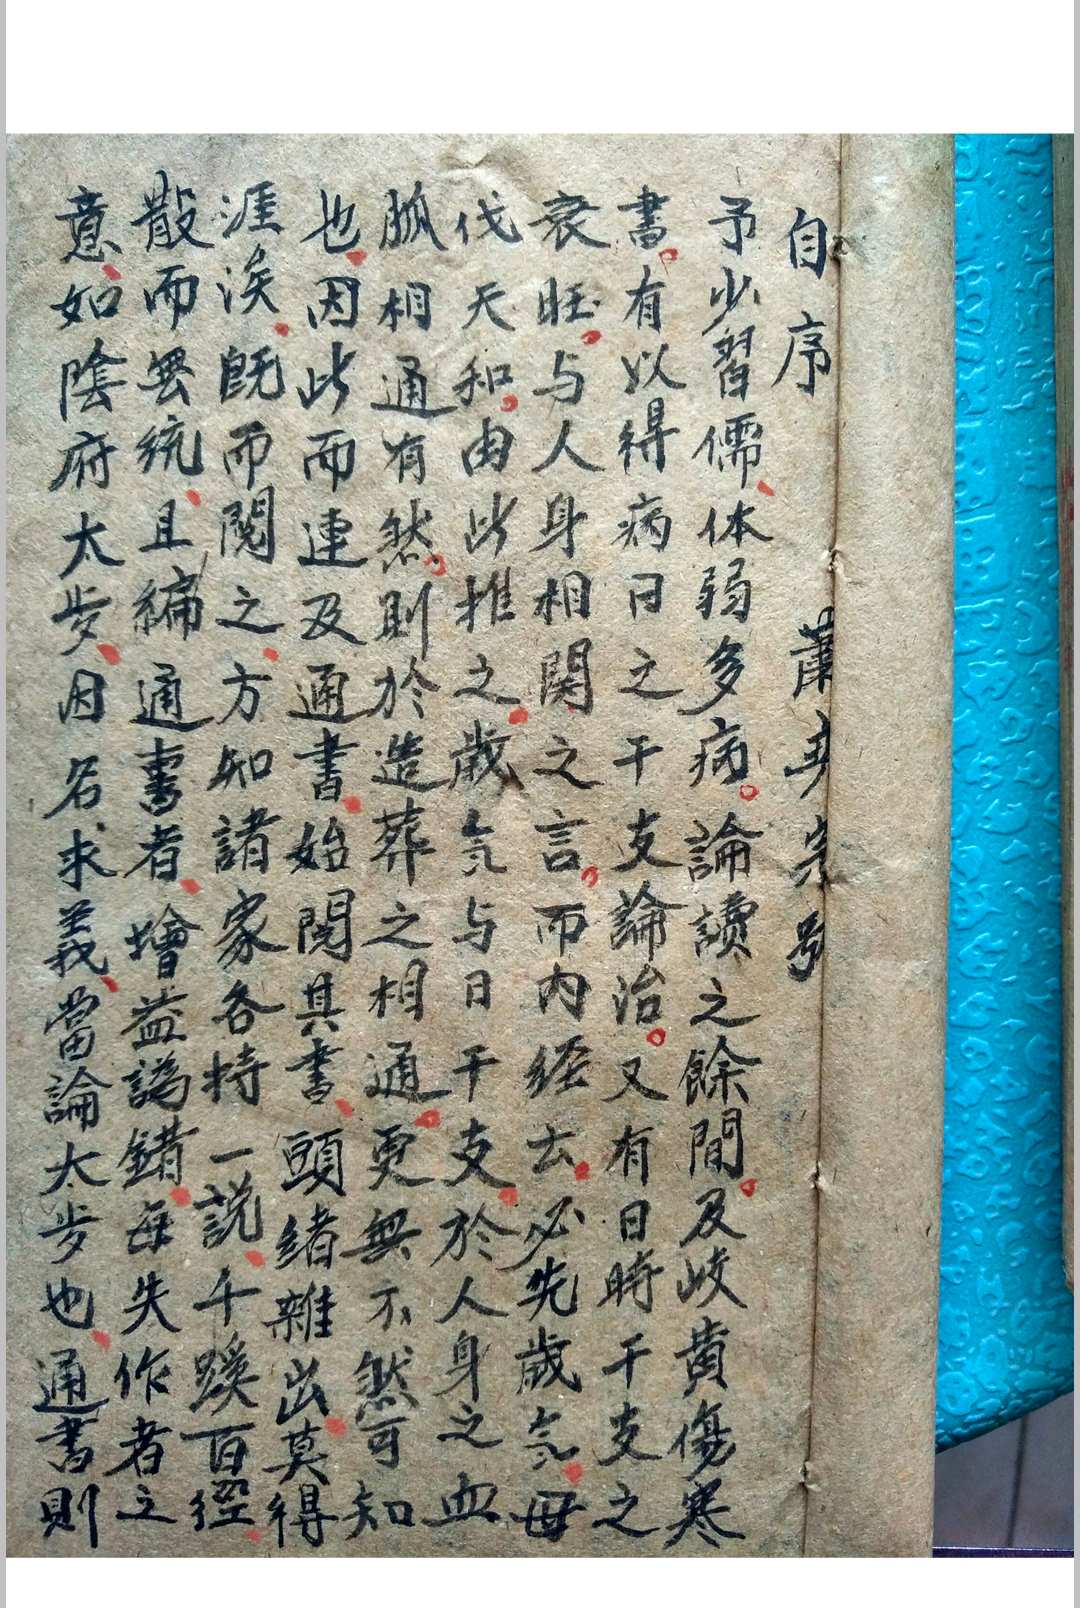 自序
予少習儒、体弱多病。論讀之餘間。及岐黄傷寒
書。有以得病日之干支論治。又有日時干支之
衰旺。与人身相関之言。而内経云。必先歲氣。毋
伐天和。由此推之。歲氣与日干支。於人身之血
脈相通有然。則於造葬之相通。更無不然可知
也。因此而連及通書。始閲其書、頭緒雜出。莫得
涯涘。既而閲之、方知諸家各持一説、千蹊百徑、
散而無统、且編通書者、增益譌錯。每失作者之
意、如陰府太歩、因名求義、當論太歩也、通書則